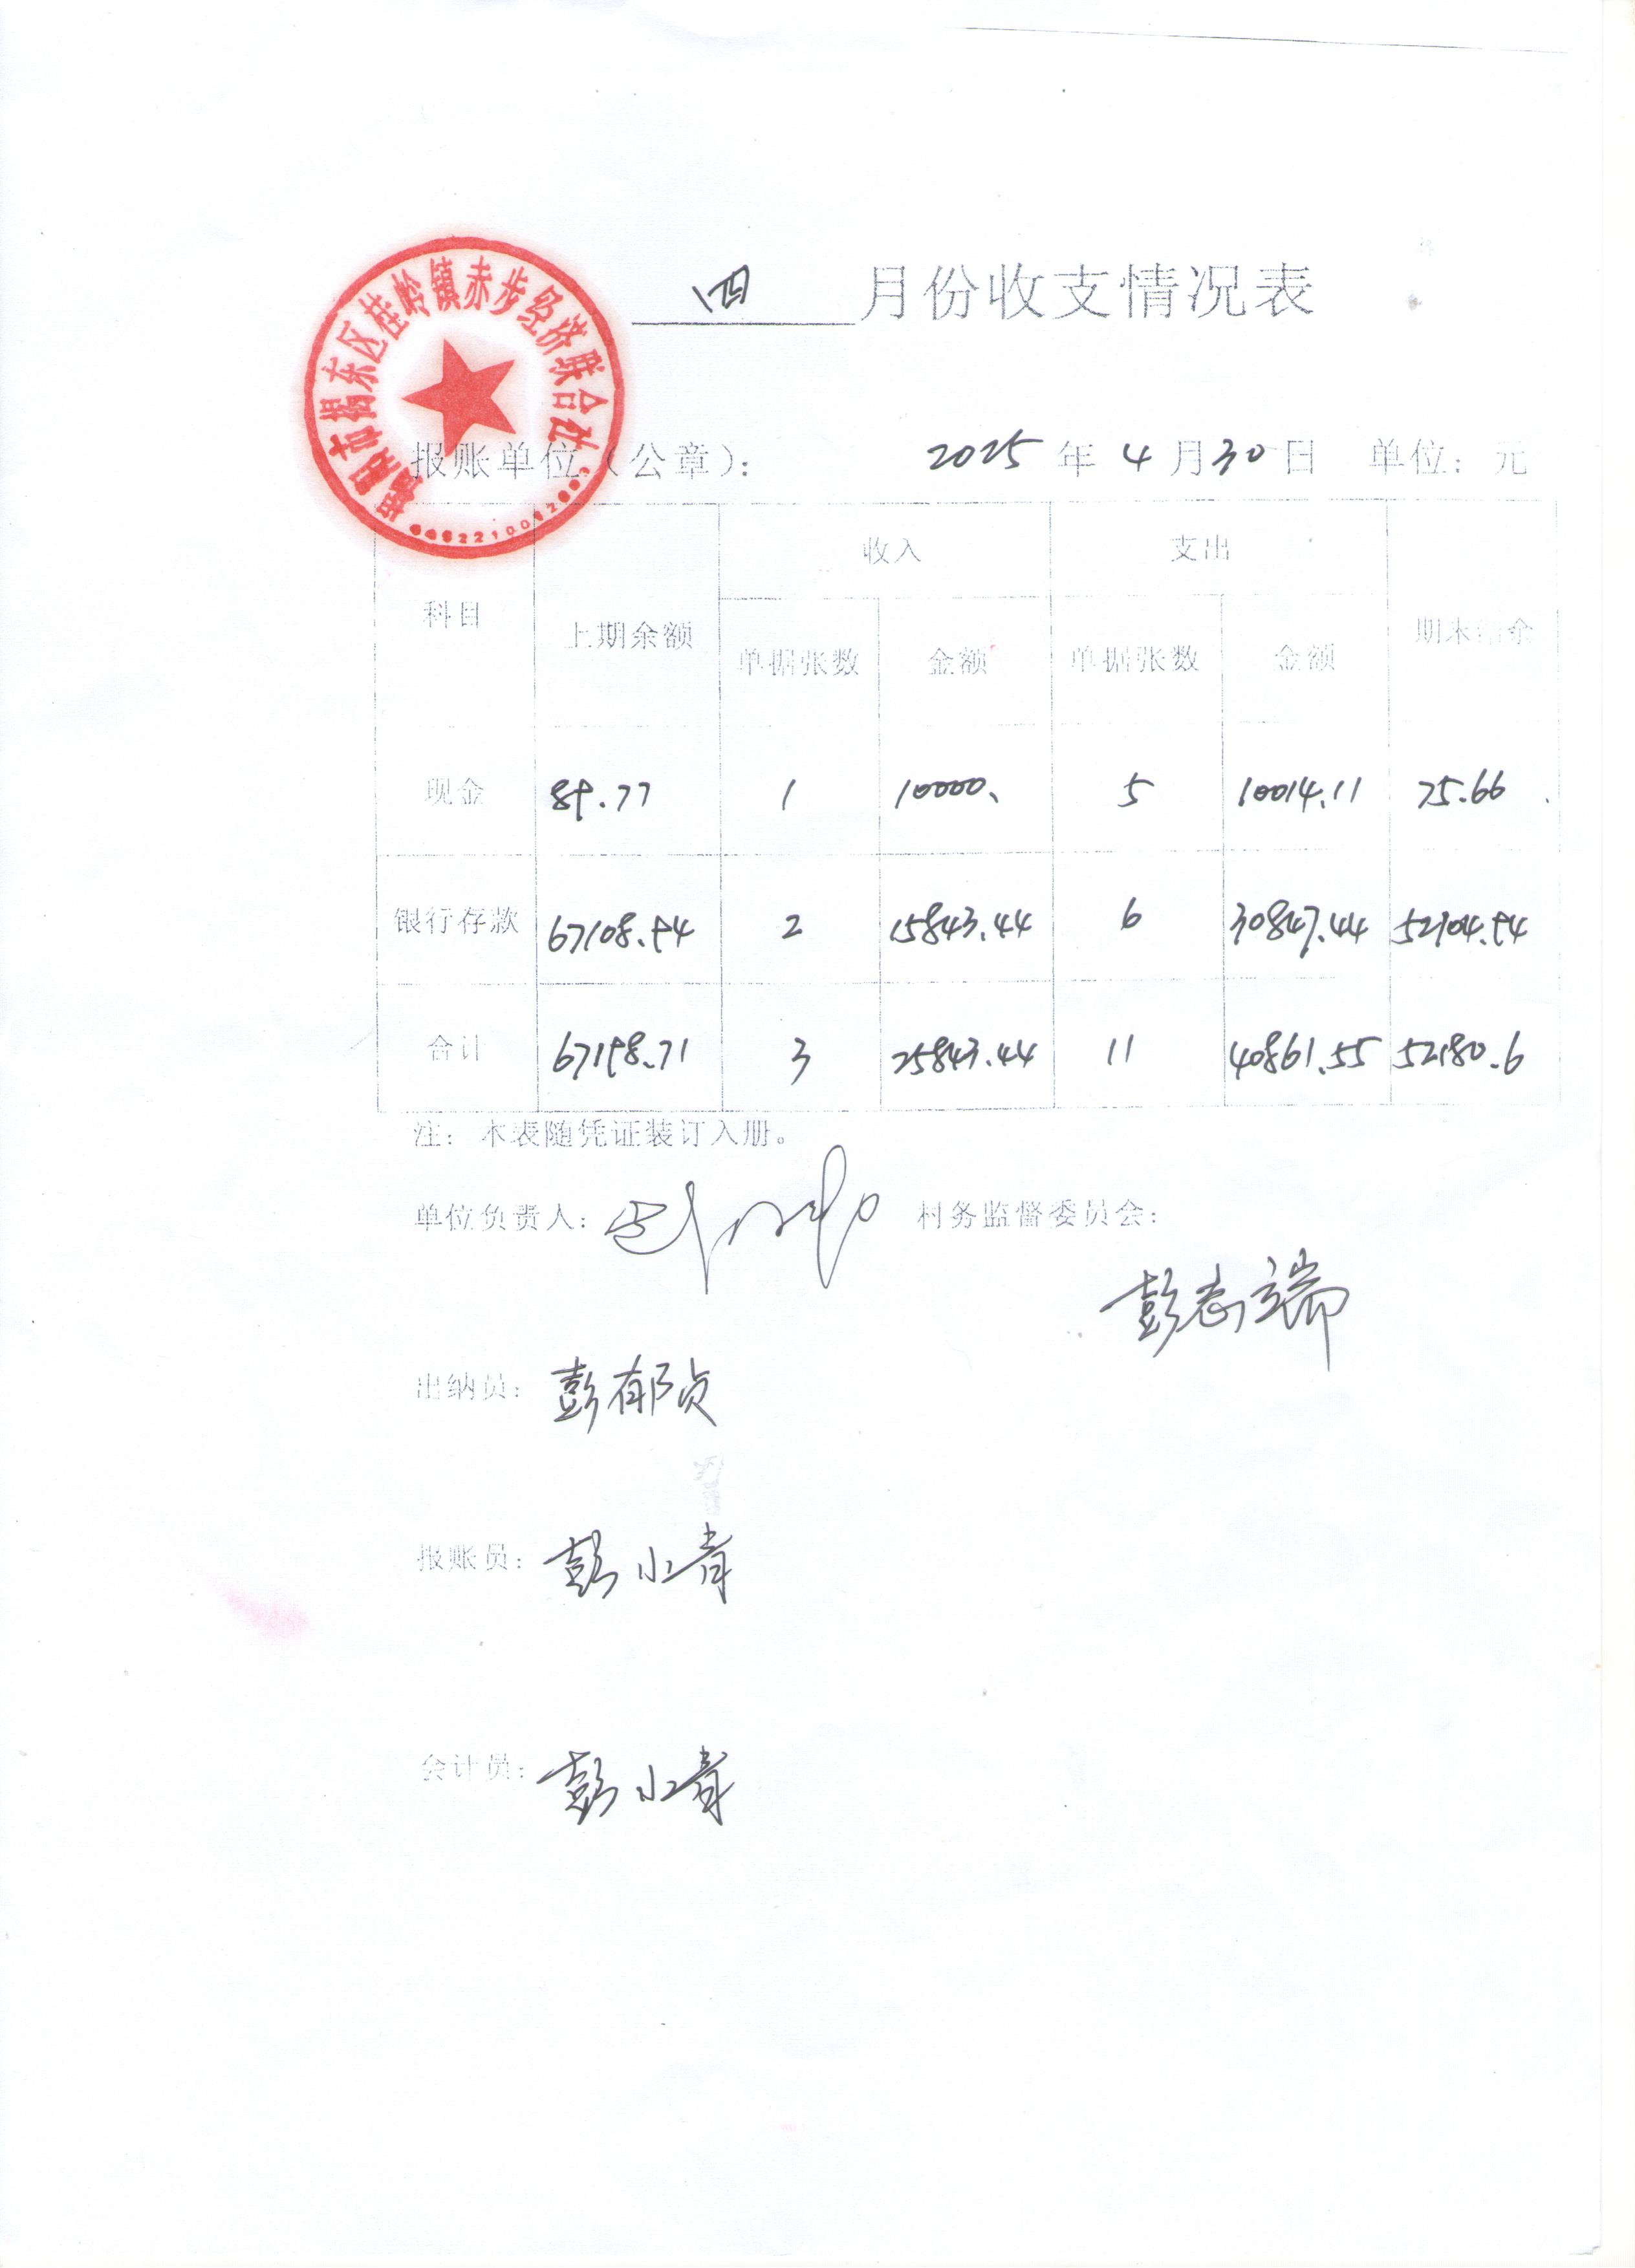 四月份收支情况表
揭阳市揭东区桂岭镇赤步经济联合社
报账单位（公章）： 2025 年 4 月 30 日 单位：元
科目 上期余额 收入 支出 期末结余
单据张数 金额 单据张数 金额
现金 89.77 1 10000. 5 10014.11 75.66
银行存款 67108.94 2 15843.44 6 30847.44 52104.94
合计 67198.71 3 25843.44 11 40861.55 52180.6
注：本表随凭证装订入册。
单位负责人： 村务监督委员会：
彭志端
出纳员：彭郁贞
报账员：彭小青
会计员：彭小青